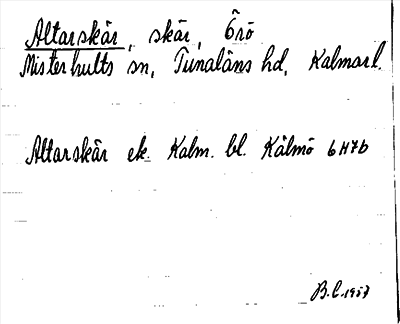 Altarskär, skär, Örö
Misterhults sn, Tunaläns hd, Kalmar l.
Altarskär ek. Kalm. bl. Kålmö 6H7b
B.C. 1957